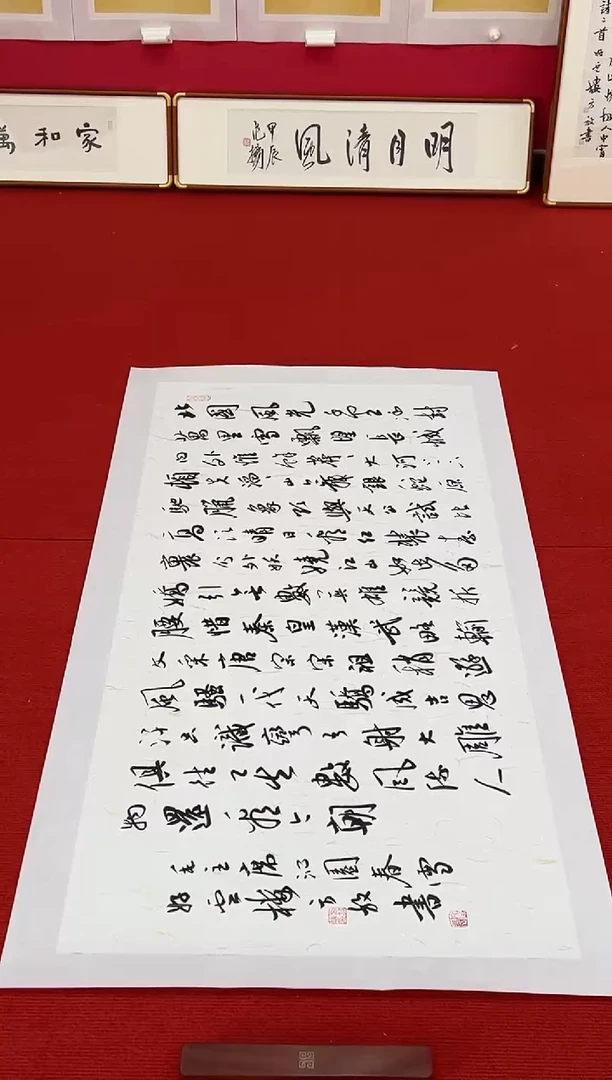 家和萬
明月清風
甲辰
北國風光千里冰封
萬里雪飄望長城
內外惟餘莽莽大河上下
頓失滔滔山舞銀蛇原
馳臘象欲與天公試比
高須晴日看紅裝素
裹分外妖嬈江山如此多
嬌引無數英雄競折
腰惜秦皇漢武略輸
文采唐宗宋祖稍遜
風騷一代天驕成吉思
汗只識彎弓射大雕
俱往矣數風流人
物還看今朝
毛主席沁園春雪
樓方放書